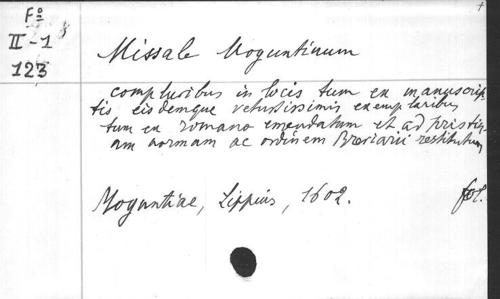 Fo
II-1
123
Missale Moguntinum
compluribus in locis tum ex manuscrip
tis eisdemque vetustissimis exemplaribus
tum ex romano emendatum et ad pristin
am normam ac ordinem Breviarii restitutum
Moguntiae, Lippius, 1602. fol.